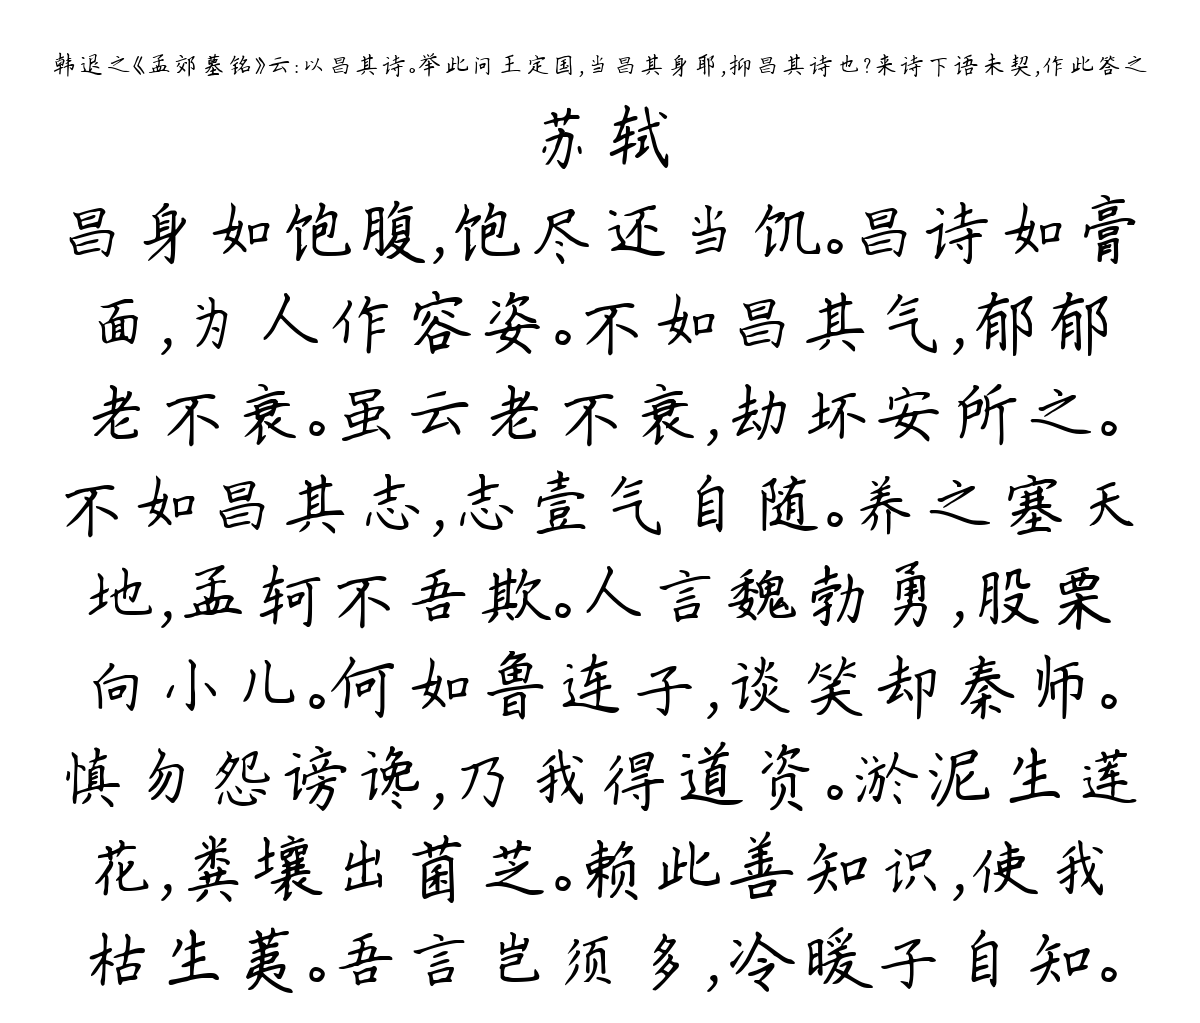 韩退之《孟郊墓铭》云:以昌其诗。举此问王定国,当昌其身耶,抑昌其诗也?来诗下语未契,作此答之
苏轼
昌身如饱腹,饱尽还当饥。昌诗如膏
面,为人作容姿。不如昌其气,郁郁
老不衰。虽云老不衰,劫坏安所之。
不如昌其志,志壹气自随。养之塞天
地,孟轲不吾欺。人言魏勃勇,股栗
向小儿。何如鲁连子,谈笑却秦师。
慎勿怨谤谗,乃我得道资。淤泥生莲
花,粪壤出菌芝。赖此善知识,使我
枯生荑。吾言岂须多,冷暖子自知。